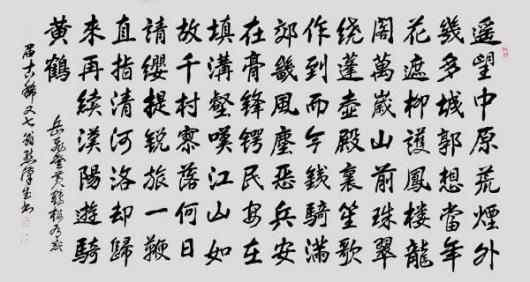 遥望中原荒煙外
幾多城郭想當年
花遮柳護鳳楼龍
閣萬嵗山前珠翠
绕蓬壺殿裏笙歌
作到而今鉄騎滿
郊畿風塵惡兵安
在膏鋒锷民安在
填溝壑嘆江山如
故千村寥落何日
請缨提锐旅一鞭
直指清河洛却歸
來再續漢陽遊騎
黄鶴
岳飛登黄鶴楼有感
屆古稀又七翁